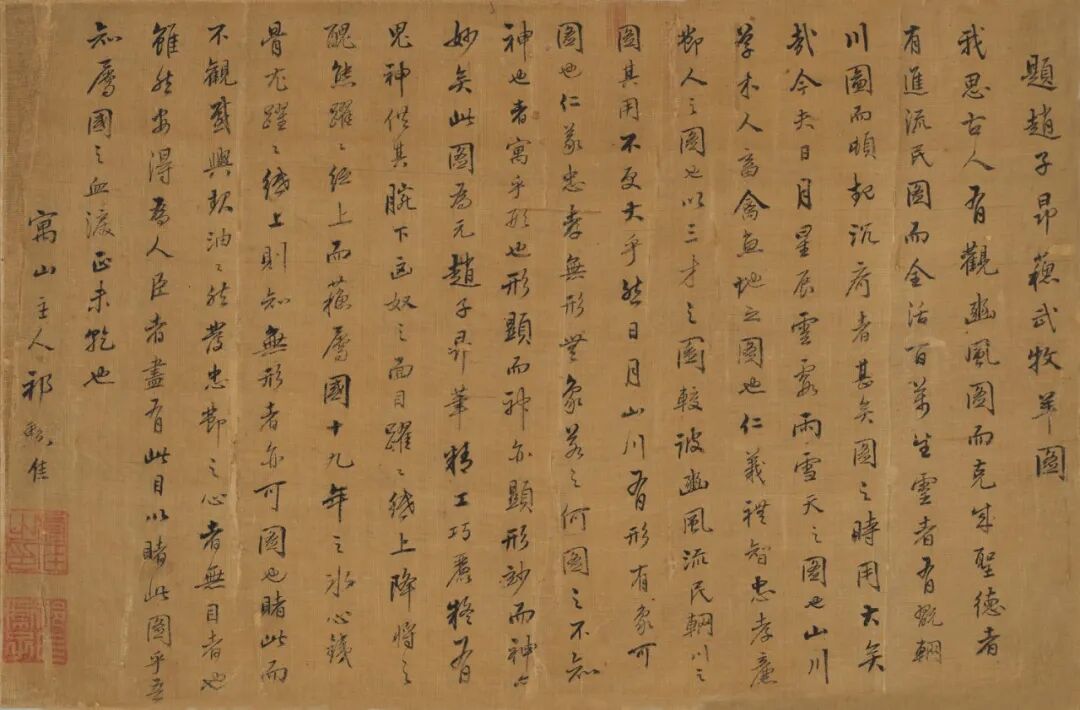 題趙子昂蘓武牧羊圖
我思古人有觀豳風圖而克成聖德者
有進流民圖而全活百萬生靈者有翫輞
川圖而頓起沉疴者甚矣圖之時用大矣
哉今夫日月星辰雲霧雨雪天之圖也山川
草木人畜禽魚地之圖也仁義禮智忠孝廉
節人之圖也以三才之圖較彼豳風流民輞川之
圖其用不更大乎然日月山川有形有象可
圖也仁義忠孝無形無象若之何圖之不知
神也者寓乎形也形顯而神亦顯形妙而神亦
妙矣此圖為元趙子昂筆精工巧麗有
鬼神供其腕下匈奴之面目躍〻紙上降將之
醜態躍〻紙上而蘓屬國十九年之冰心鐵
骨尤躍〻紙上則知無形者亦可圖也睹此而
不觀感興起油〻然發忠節之心者無目者也
雖然安得為人臣者盡有此目以睹此圖乎吾
知屬國之血淚正未乾也
寓山主人祁駿佳